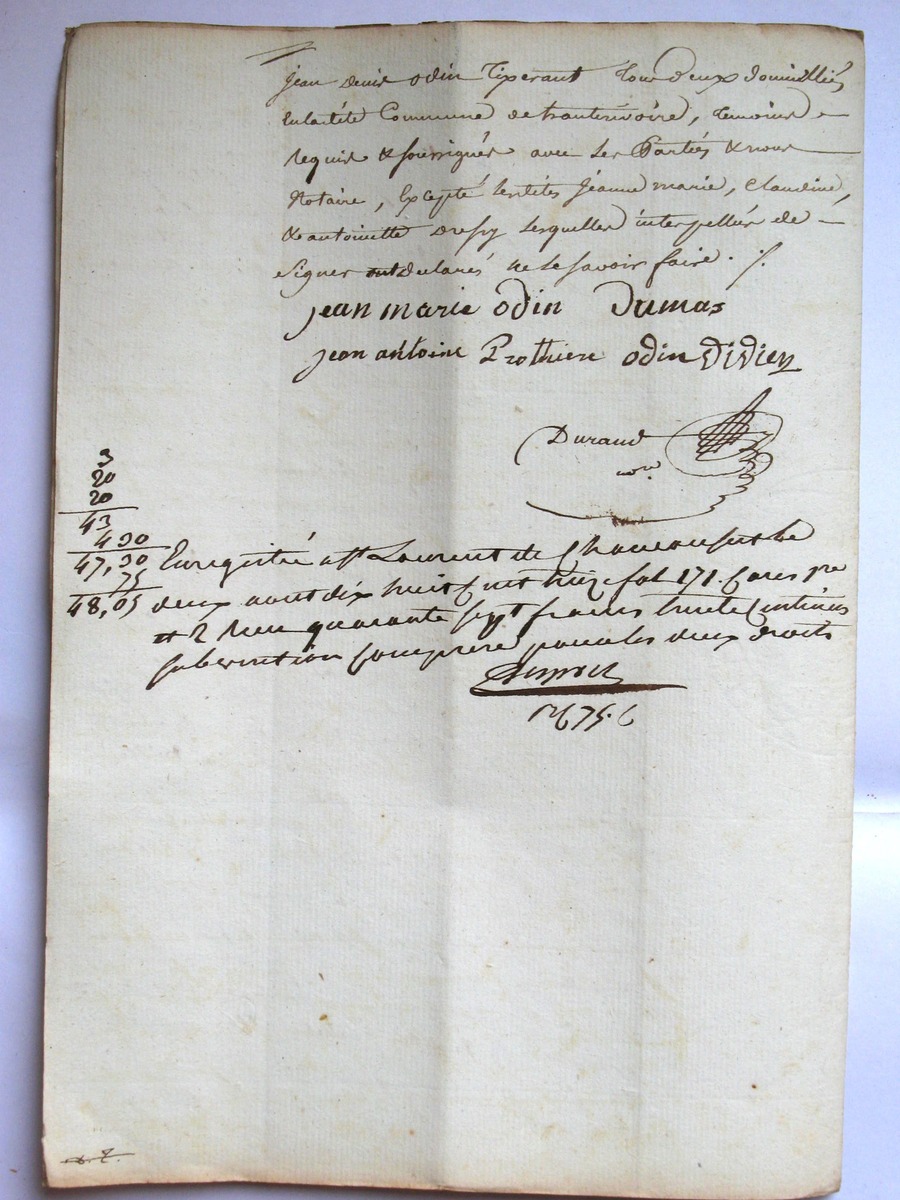 Jean Denis odin Tixerant Tous deux domicilliés
En la dite Commune de trantenvoire, temoins
Requis & soussignés avec Les Parties & nous
Notaire, Excepté lesdites Jéanne marie, Claudine,
& antoinette Dressy Lesquelles interpellés de
Signer ont declarés ne le savoir faire ./.
jean marie odin Dumas
jean antoine Prothiere odin Didier
Durand
nore
3
20
20
43
4 30
47,30
75
48,05
Enregistré a st Laurent de Chamousset le
deux aout dix huit cent treize fol 171. Cases pre
et 2 Recu quarante sept francs trente Centimes
subvention comprise pour les deux droits